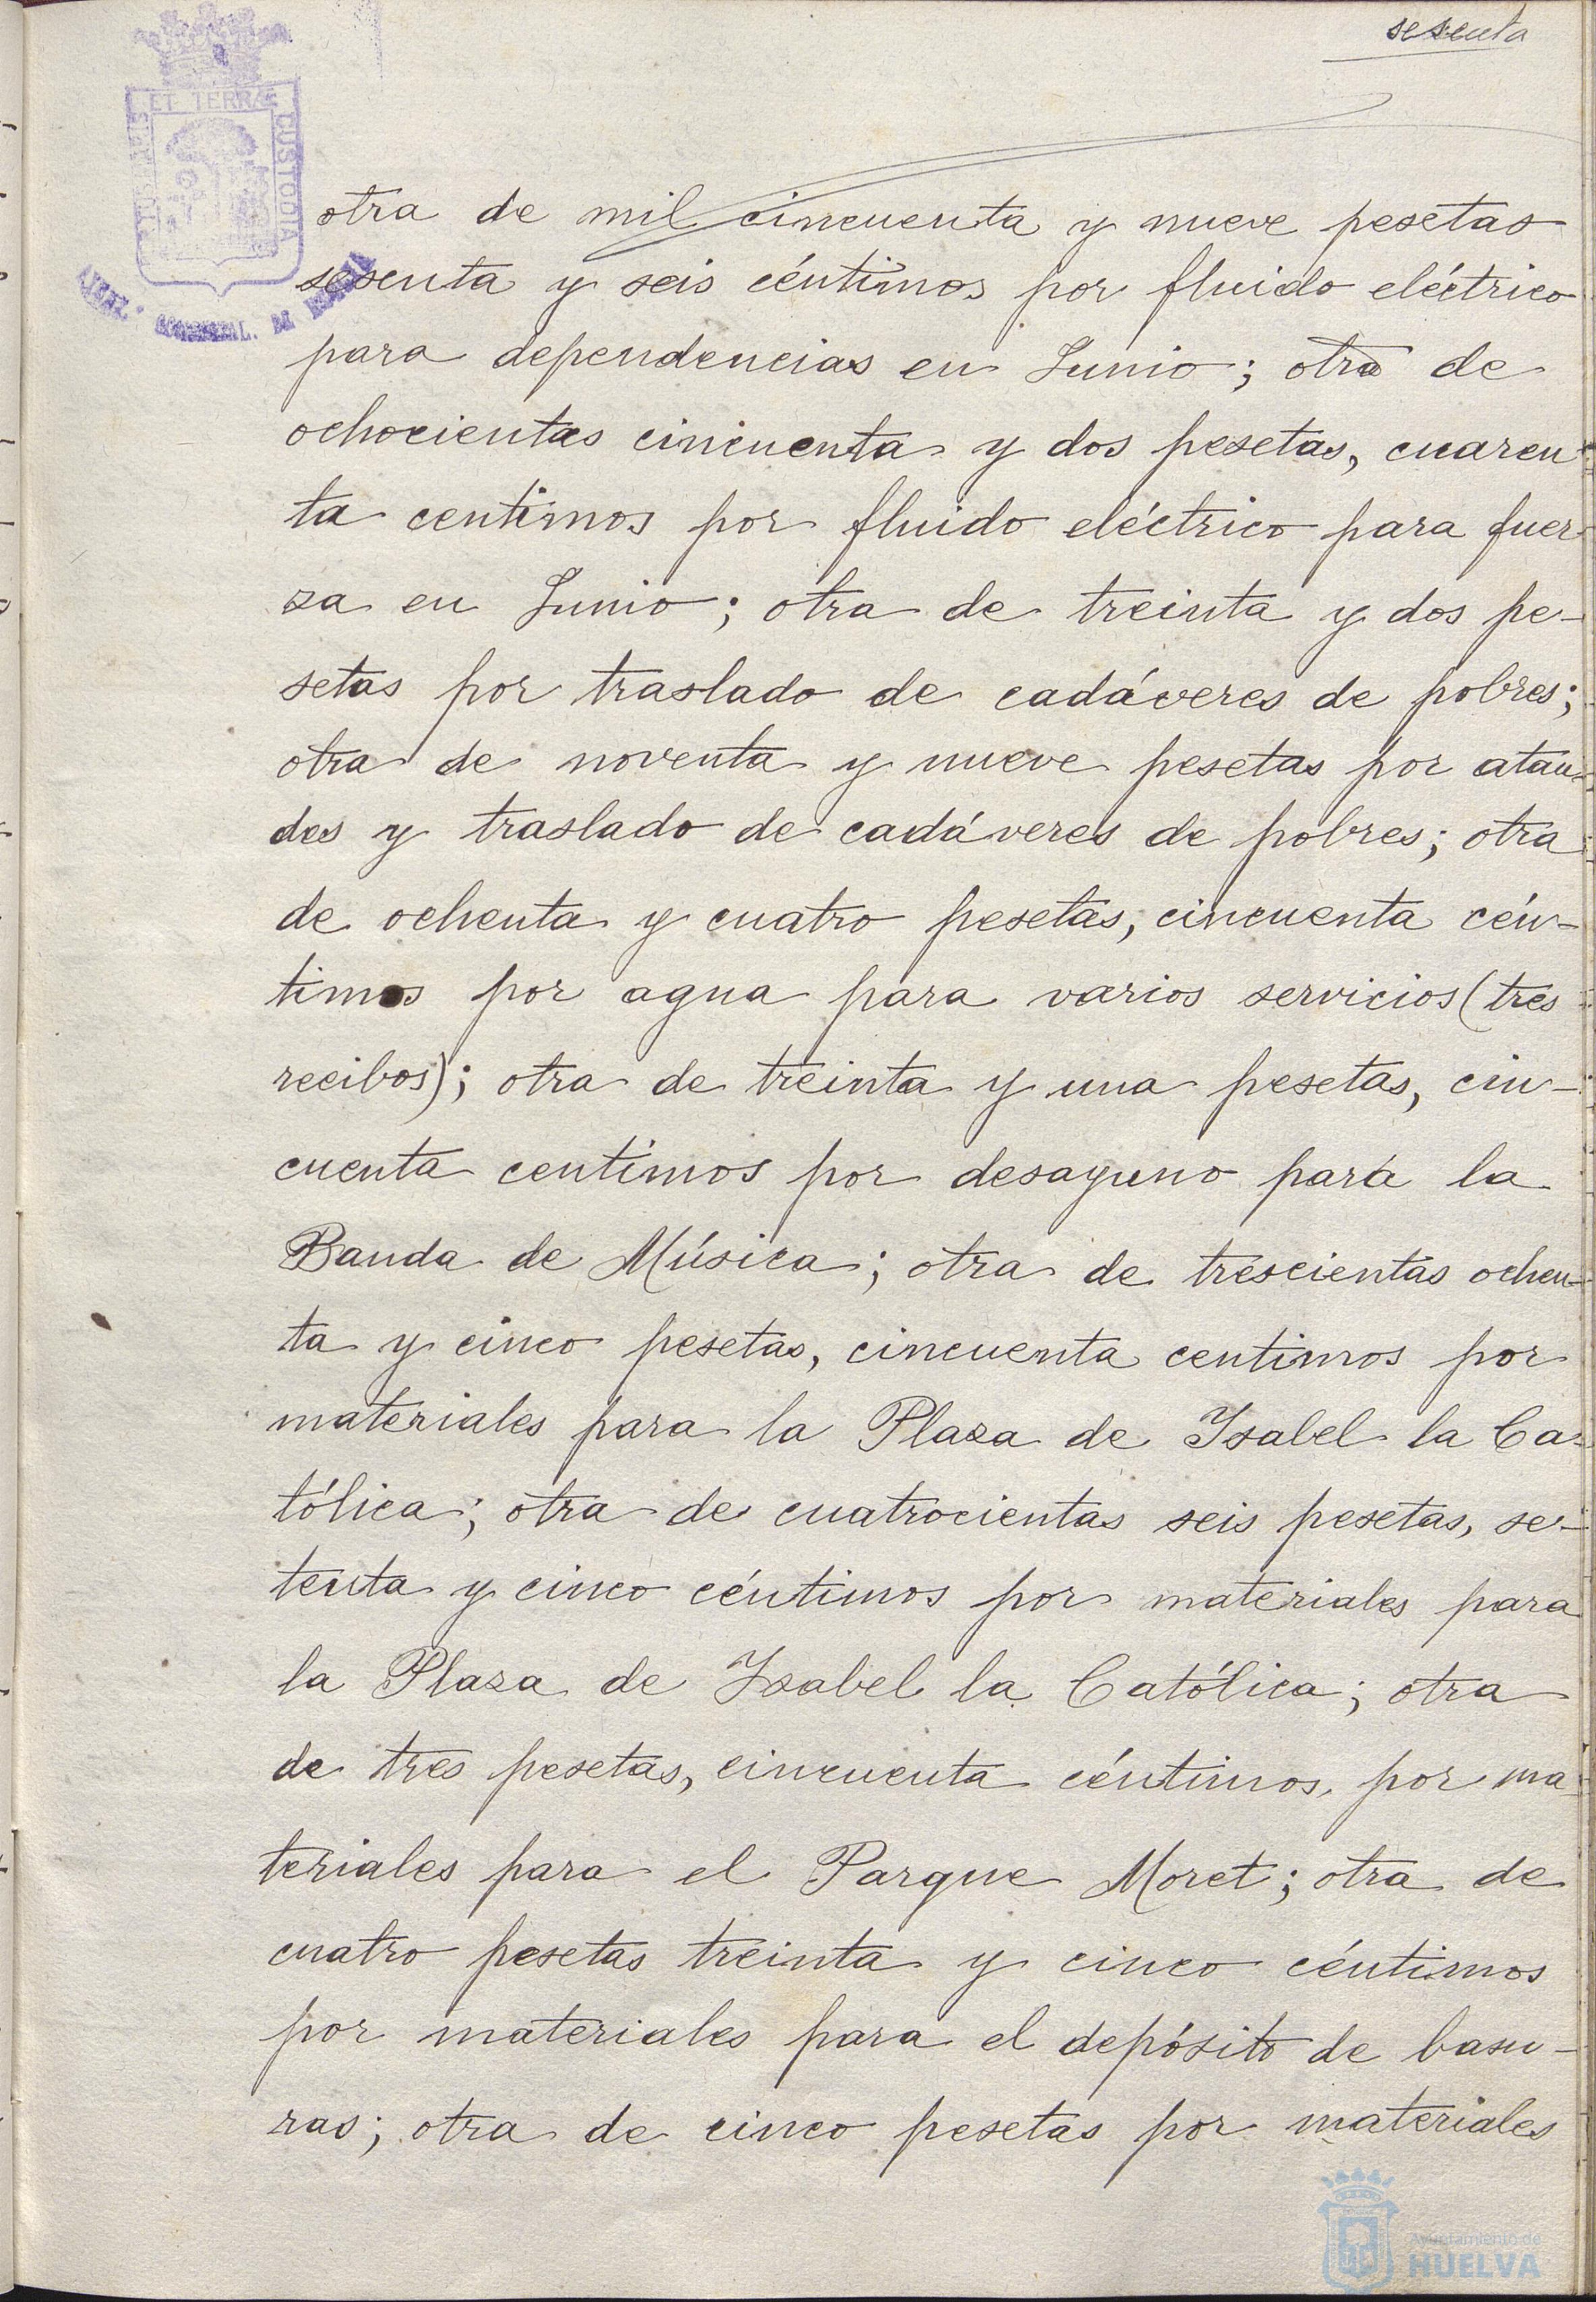 sesenta
ET TERRAE
CUSTODIA
otra de mil cincuenta y nueve pesetas
sesenta y seis céntimos por fluido eléctrico
para dependencias en Junio; otra de
ochocientas cincuenta y dos pesetas, cuaren
ta centimos por fluido eléctrico para fuer
za en Junio; otra de treinta y dos pe-
setas por traslado de cadáveres de pobres;
otra de noventa y nueve pesetas por atau-
des y traslado de cadáveres de pobres; otra
de ochenta y cuatro pesetas, cincuenta cén-
timos por agua para varios servicios (tres
recibos); otra de treinta y una pesetas, cin-
cuenta centimos por desayuno para la
Banda de Música; otra de trescientas ochen-
ta y cinco pesetas, cincuenta centimos por
materiales para la Plaza de Isabel la Ca-
tólica; otra de cuatrocientas seis pesetas, se-
tenta y cinco céntimos por materiales para
la Plaza de Isabel la Católica; otra
de tres pesetas, cincuenta céntimos, por ma
teriales para el Parque Moret; otra de
cuatro pesetas treinta y cinco céntimos
por materiales para el depósito de basu-
ras; otra de cinco pesetas por materiales
Ayuntamiento de
HUELVA